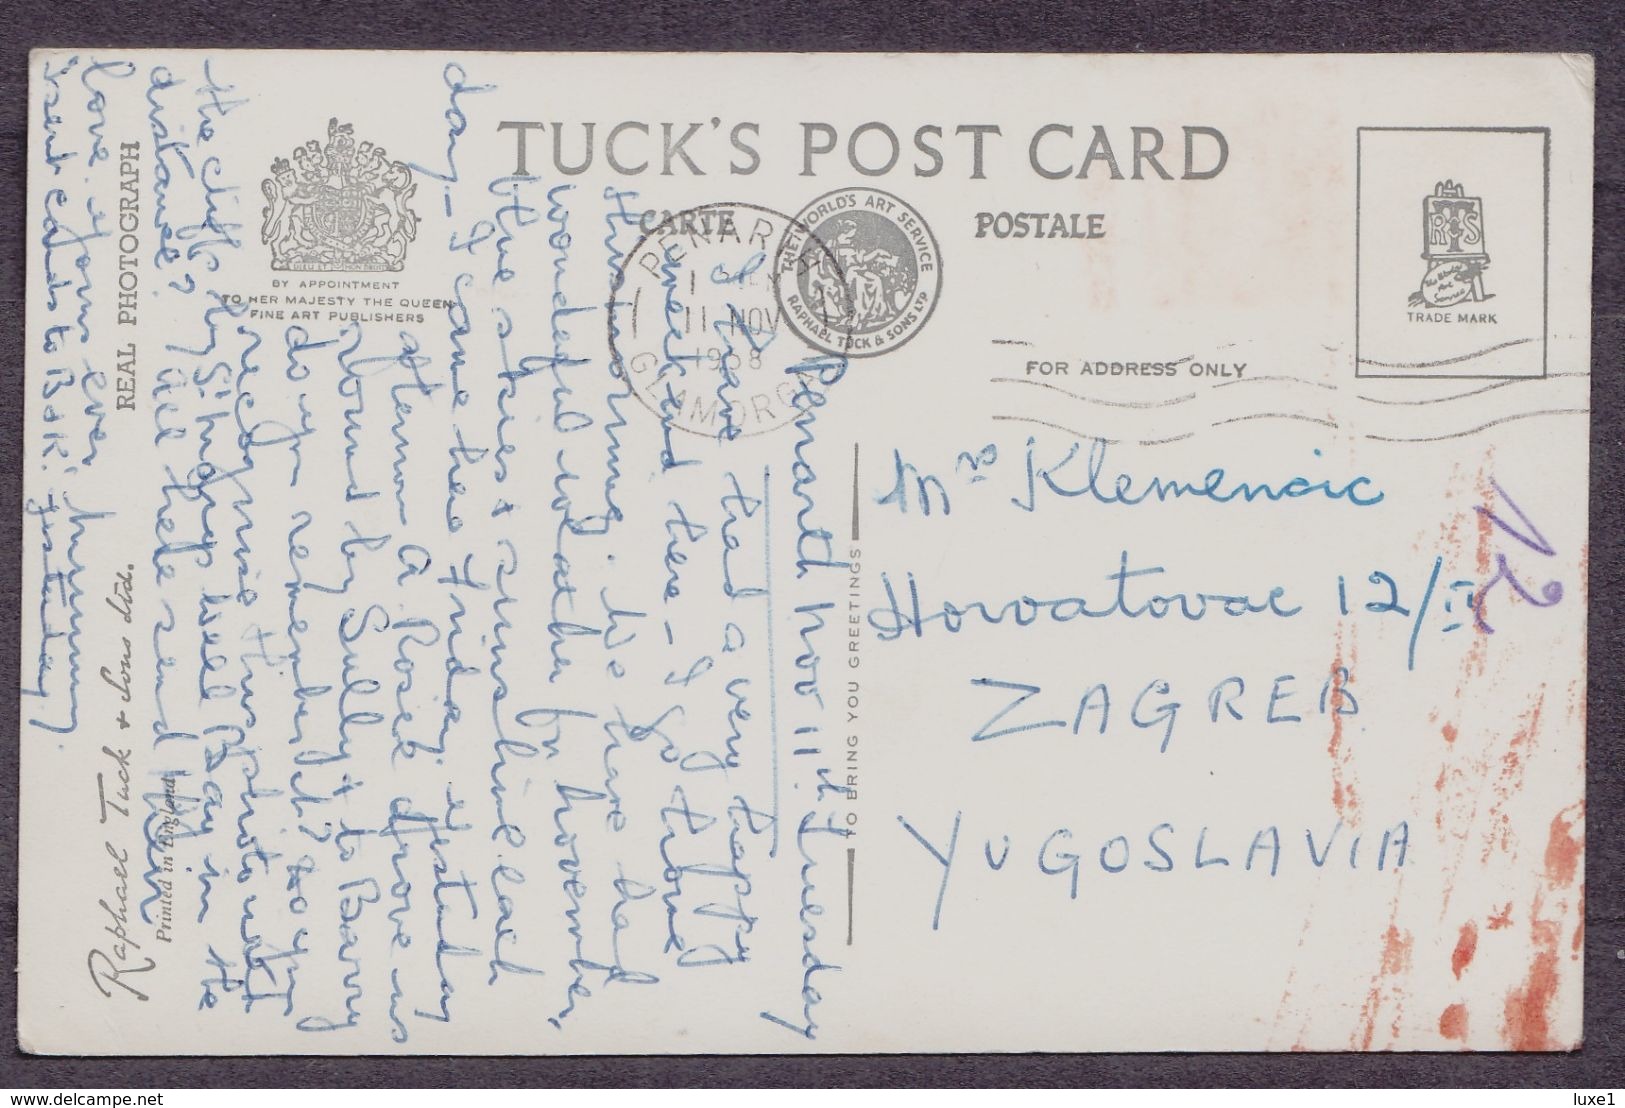 TUCK'S POST CARD
CARTE POSTALE
BY APPOINTMENT
TO HER MAJESTY THE QUEEN
FINE ART PUBLISHERS
DIEU ET MON DROIT
THE WORLD'S ART SERVICE
RAPHAEL TUCK & SONS LTD
PENARTH
11 NOV
1958
GLAMORGAN
TRADE MARK
FOR ADDRESS ONLY
Mrs Klemencic
Horvatovac 12/II
ZAGREB
YUGOSLAVIA
12
TO BRING YOU GREETINGS
Penarth Nov 11th Tuesday
I have had a very happy
week end here - I go home
this morning. We have had
wonderful weather for November,
blue skies & sunshine each
day - I came here Friday. Yesterday
afternoon a Rosed drove us
round by Sully & to Barry
do you remember it? & do you
recognise this photo?
the cliffs by St Marys Well Bay in the
distance? All here send their
love. Yours ever
I sent cards to B & K. yesterday.
REAL PHOTOGRAPH
Raphael Tuck & Sons Ltd.
Printed in England
luxe1
www.delcampe.net